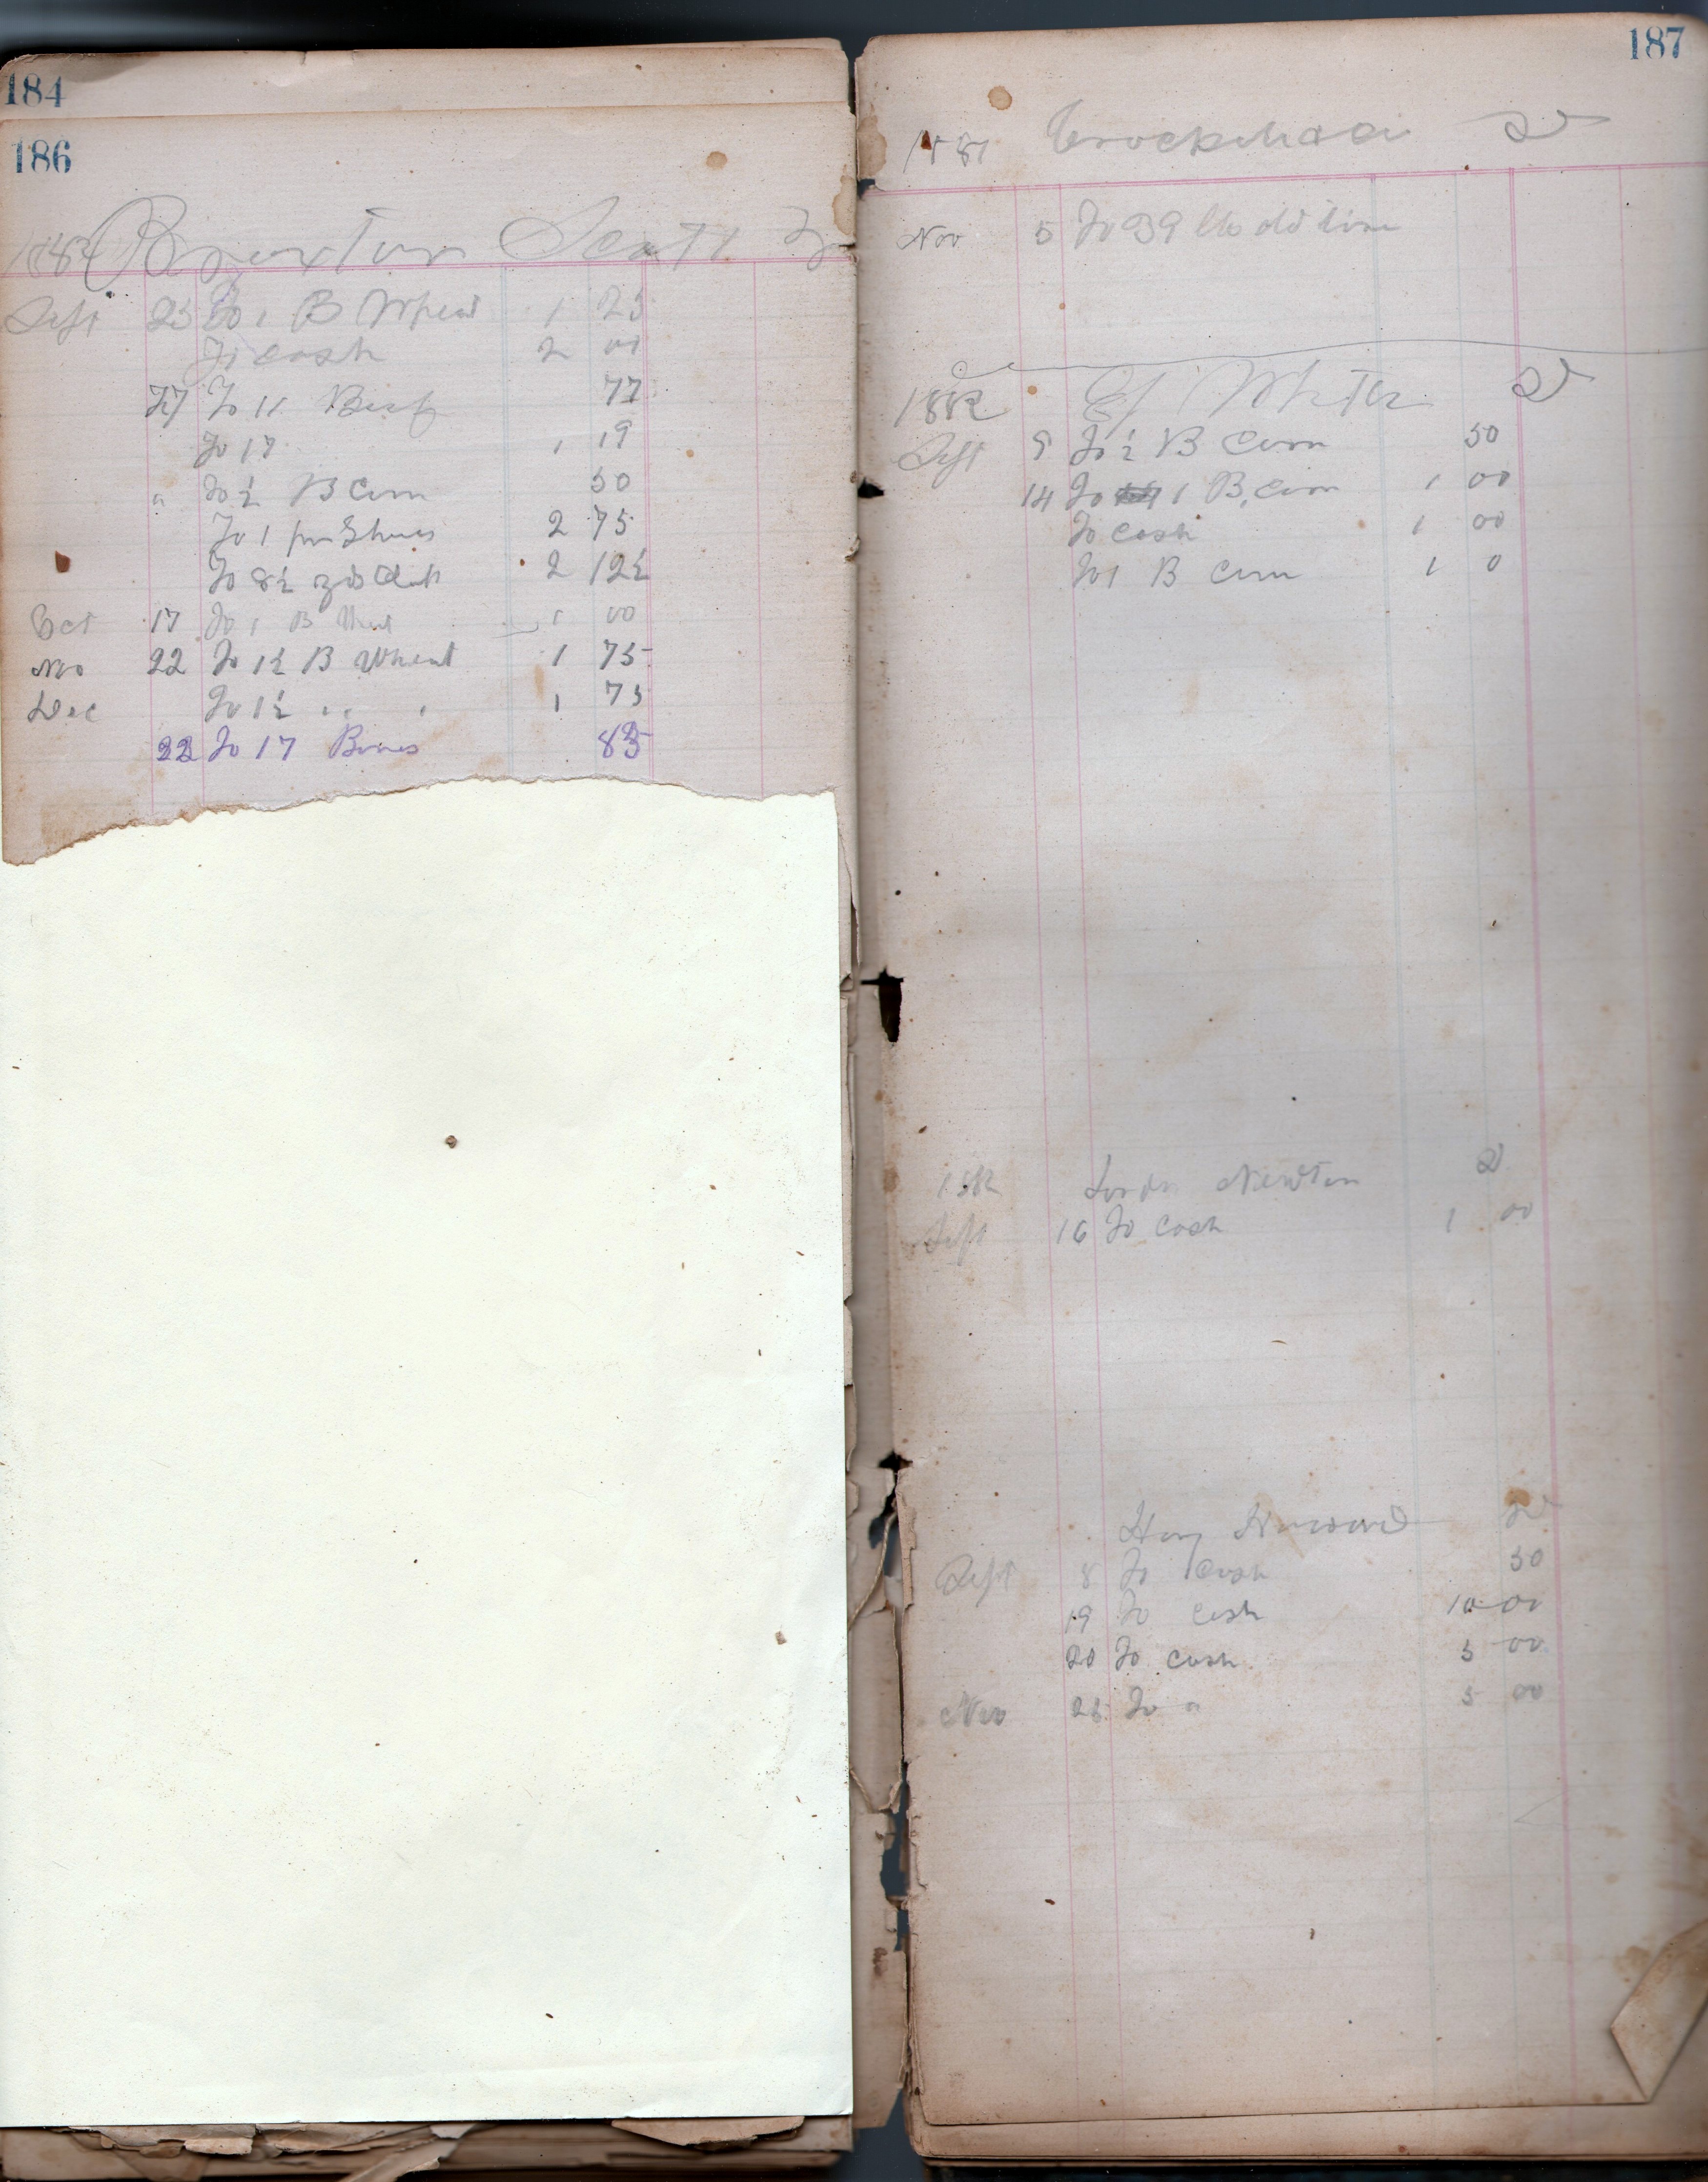 184
186
1882 Braxton Scott Dr
Sept 25 To 1 B Wheat 1 25
To cash 2 00
27 To 11 Beef 77
To 17 1 19
" To ½ B Corn 50
To 1 pr Shoes 2 75
To 8½ 2 12½
Oct 17 To 1 B 1 00
Nov 22 To 1½ B Wheat 1 75
Dec To 1½ " " 1 75
22 To 17 85
187
1881 Dr
Nov 5 To 39 lbs old iron
1882 Dr
Sept 9 To ½ B Corn 50
14 To 1 B. Corn 1 00
To cash 1 00
To 1 B Corn 1 0
1882 Newton Dr
Sept 16 To Cash 1 00
Dr
Sept 8 To Cash 50
19 To Cash 10 00
20 To Cash 5 00
Nov 25 To " 5 00